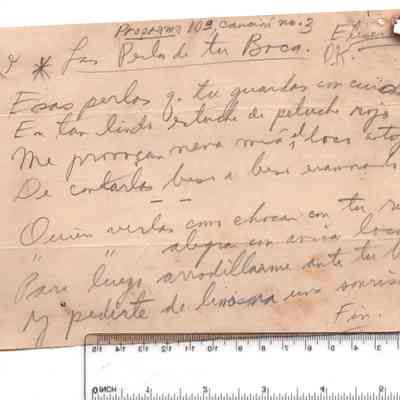 Programa 103, canción no. 3
* Las Perlas de tu Boca.
OK.
Esas perlas q. tu guardas con cuida
En tan lindo estuche de peluche rojo
Me provocan nena mia, el loco anto
De contarlas beso a beso enamorado
Quien verlas como chocan con tu
" " alegra con ansia loca
Para luego arrodillarme ante tu b
Y pedirte de limosna una sonris
Fin.
INCH
1
2
3
4